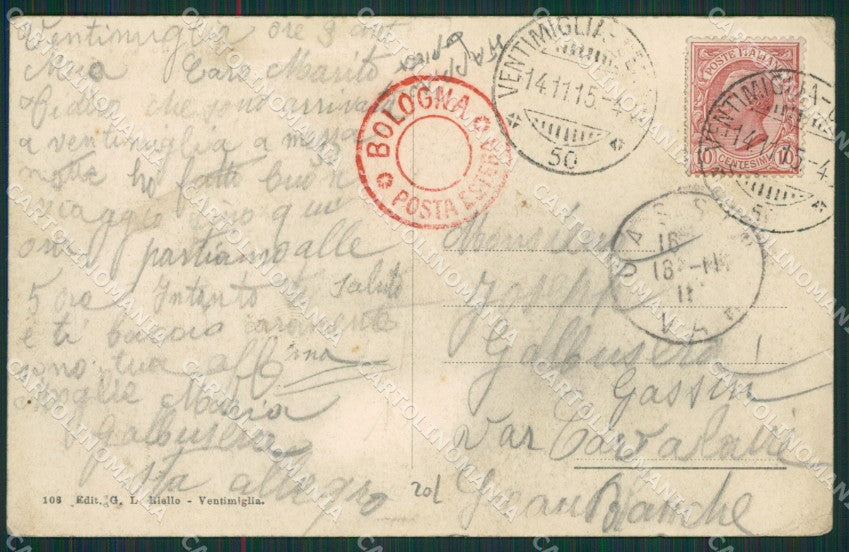 Ventimiglia ore 3 ant
Mio Caro Marito
che sono arrivata
a ventimiglia a mezza
notte ho fatto buon
viaggio fino qui
ora partiamo alle
5 ore Intanto ti saluto
e ti bacio caramente
sono tua aff ma
moglie Maria
Galbusera
sta allegro
108 Edit. G. L. Riello - Ventimiglia.
BOLOGNA
POSTA ESTERA
VENTIMIGLIA
14.11.15.-4
50
POSTE ITALIANE
10 CENTESIMI 10
VENTIMIGLIA
14.11.15-4
GASSIN
VAR
Monsieur
Joseph
Galbusera
Gassin
Var Cavalaire
201
CARTOLINOMANIA